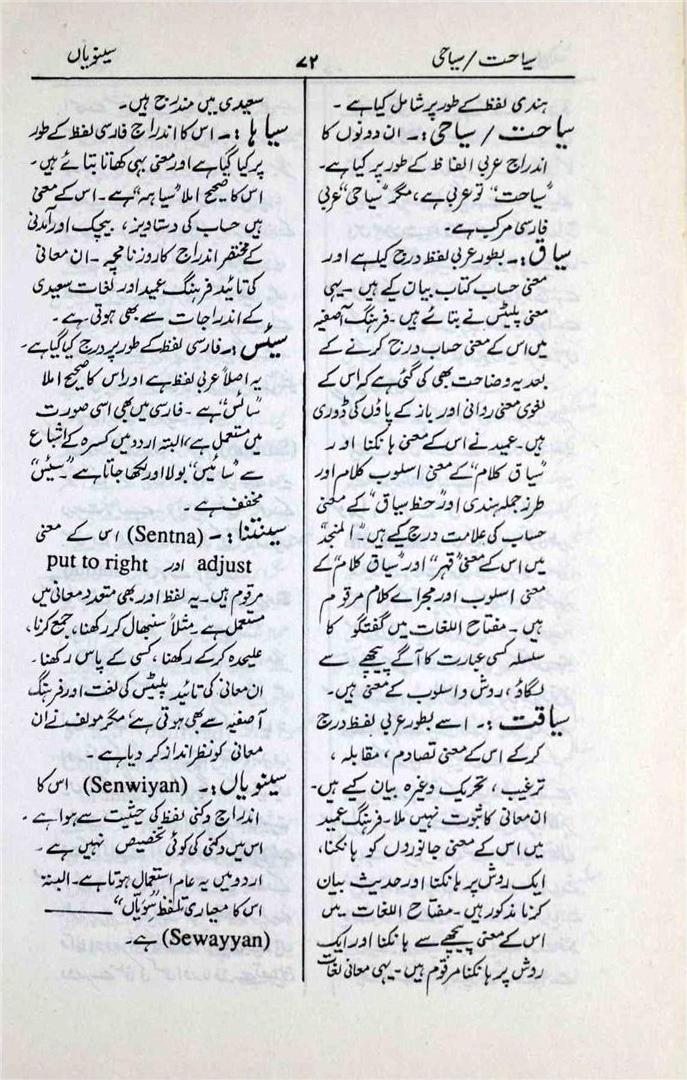 سیاحت/سیاحی ۷۲ سینویاں
ہندی لفظ کے طور پر شامل کیا ہے۔
سیاحت / سیاحی :۔ ان دونوں کا
اندراج عربی الفاظ کے طور پر کیا ہے۔
"سیاحت" تو عربی ہے، مگر "سیاحی" عربی
فارسی مرکب ہے۔
سیاق :۔ بطور عربی لفظ درج کیا ہے اور
معنی حساب کتاب بیان کیے ہیں۔ یہی
معنی پلیٹس نے بتائے ہیں۔ فرہنگ آصفیہ
میں اس کے معنی حساب درج کرنے کے
بعد یہ وضاحت بھی کی گئی ہے کہ اس کے
لغوی معنی روانی اور باز کے پاؤں کی ڈوری
ہیں۔ عمید نے اس کے معنی ہانکنا اور
"سیاق کلام" کے معنی اسلوب کلام اور
طرز جملہ بندی اور "خط سیاق" کے معنی
حساب کی علامت درج کیے ہیں۔ "المنجد"
میں اس کے معنی "مہر" اور "سیاق کلام" کے
معنی اسلوب اور مجراے کلام مرقوم
ہیں۔ مفتاح اللغات میں گفتگو کا
سلسلہ کسی عبارت کا آگے پیچھے سے
لگاؤ، روش و اسلوب کے معنی ہیں۔
سیاقت :۔ اسے بطور عربی لفظ درج
کر کے اس کے معنی تصادم، مقابلہ،
ترغیب، تحریک وغیرہ بیان کیے ہیں۔
ان معانی کا ثبوت نہیں ملا۔ فرہنگ عمید
میں اس کے معنی جانوروں کو ہانکنا،
ایک روش پر ہانکنا اور حدیث بیان
کرنا مذکور ہیں۔ مفتاح اللغات میں
اس کے معنی پیچھے سے ہانکنا اور ایک
روش پر ہانکنا مرقوم ہیں۔ یہی معانی لغات
سعیدی میں مندرج ہیں۔
سیاہا :۔ اس کا اندراج فارسی لفظ کے طور
پر کیا گیا ہے اور معنی بہی کھاتا بتائے ہیں۔
اس کا صحیح املا "سیاہہ" ہے۔ اس کے معنی
ہیں حساب کی دستاویز، بیچک اور آمدنی
کے مختصر اندراج کا روزنامچہ۔ ان معانی
کی تائید فرہنگ عمید اور لغات سعیدی
کے اندراجات سے بھی ہوتی ہے۔
سیئس :۔ فارسی لفظ کے طور پر درج کیا گیا ہے۔
یہ اصلاً عربی لفظ ہے اور اس کا صحیح املا
"سائس" ہے۔ فارسی میں بھی اسی صورت
میں مستعمل ہے، البتہ اردو میں کسرہ کے اشباع
سے "سائیس" بولا اور لکھا جاتا ہے۔ "سئیس"
مخفف ہے۔
سینتنا :۔ (Sentna) اس کے معنی
adjust اور put to right
مرقوم ہیں۔ یہ لفظ اور بھی متعدد معانی میں
مستعمل ہے۔ مثلاً سنبھال کر رکھنا، جمع کرنا،
علیحدہ کر کے رکھنا، کسی کے پاس رکھنا۔
ان معانی کی تائید پلیٹس کی لغت اور فرہنگ
آصفیہ سے بھی ہوتی ہے، مگر مولف نے ان
معانی کو نظر انداز کر دیا ہے۔
سینویاں :۔ (Senwiyan) اس کا
اندراج دکنی لفظ کی حیثیت سے ہوا ہے۔
اس میں دکنی کی کوئی تخصیص نہیں ہے۔
اردو میں یہ عام استعمال ہوتا ہے۔ البتہ
اس کا معیاری تلفظ "سویّاں"
(Sewayyan) ہے۔